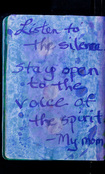 Listen to
the silence
stay open
to the
voice of
the spirit
-My mom